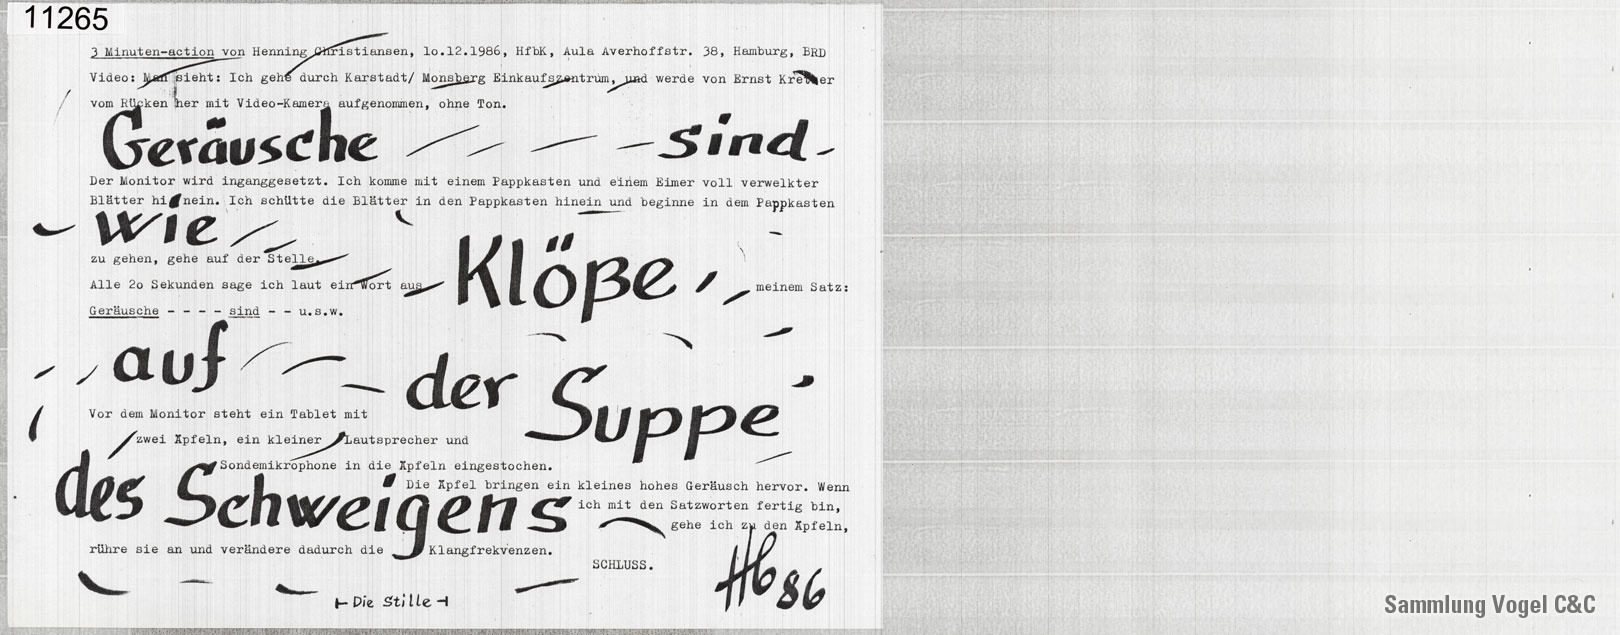 11265
3 Minuten-action von Henning Christiansen, lo.12.1986, HfbK, Aula Averhoffstr. 38, Hamburg, BRD
Video: Man sieht: Ich gehe durch Karstadt/ Monsberg Einkaufszentrum, und werde von Ernst
vom Rücken her mit Video-Kamera aufgenommen, ohne Ton.
Geräusche sind
Der Monitor wird inganggesetzt. Ich komme mit einem Pappkasten und einem Eimer voll verwelkter
Blätter hinein. Ich schütte die Blätter in den Pappkasten hinein und beginne in dem Pappkasten
wie
zu gehen, gehe auf der Stelle.
Klöße
Alle 2o Sekunden sage ich laut ein Wort aus meinem Satz:
Geräusche - - - - sind - - u.s.w.
auf
der
Suppe
Vor dem Monitor steht ein Tablet mit
zwei Äpfeln, ein kleiner Lautsprecher und
Sondemikrophone in die Äpfeln eingestochen.
des Schweigens
Die Äpfel bringen ein kleines hohes Geräusch hervor. Wenn
ich mit den Satzworten fertig bin,
gehe ich zu den Äpfeln,
rühre sie an und verändere dadurch die Klangfrekvenzen.
SCHLUSS.
86
Die Stille
Sammlung Vogel C&C